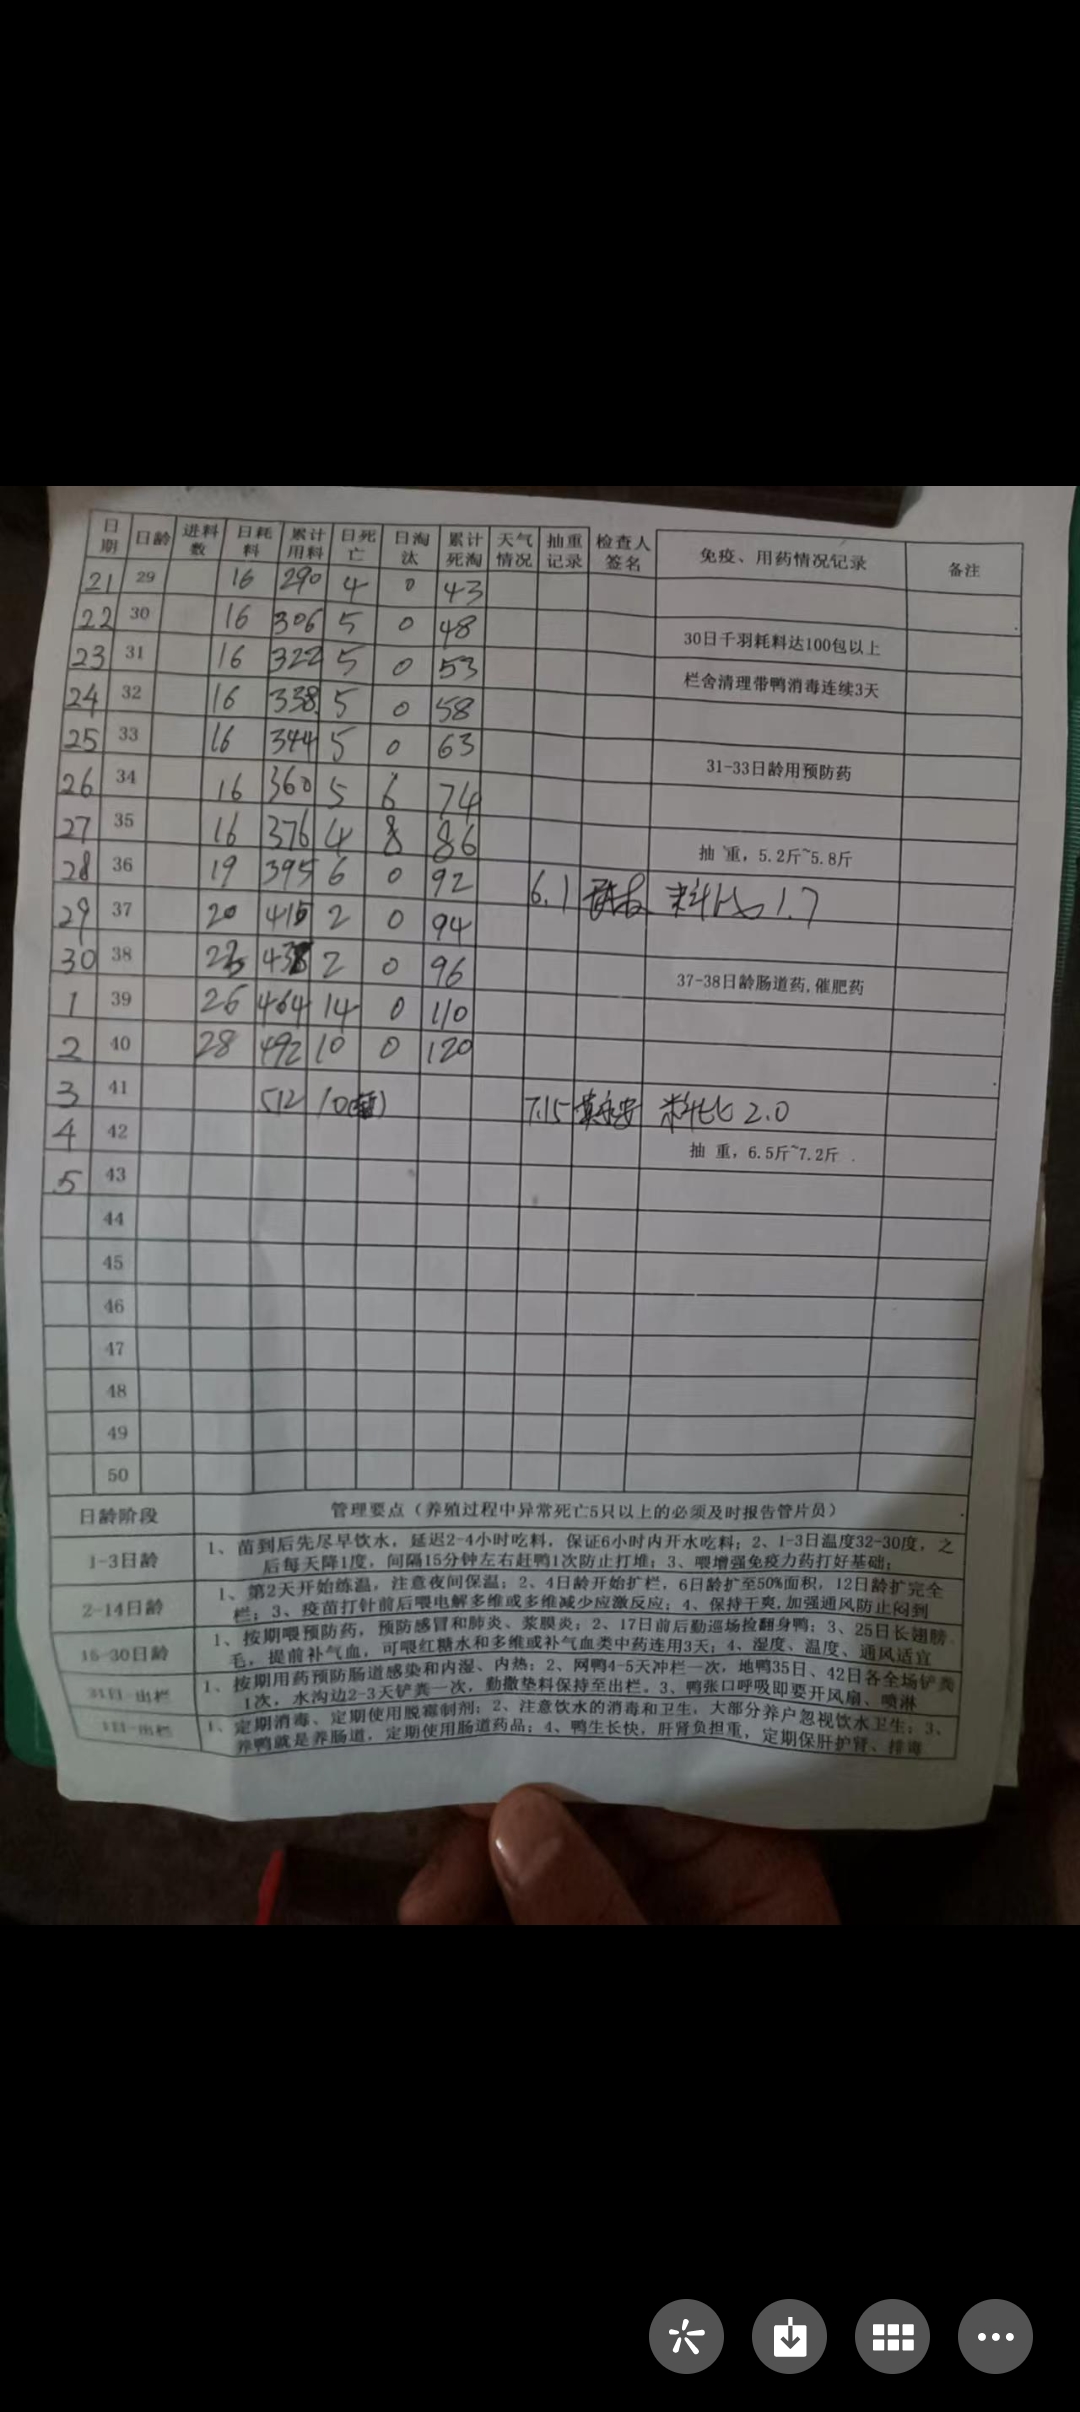 日期 日龄 进料数 日耗料 累计用料 日死亡 日淘汰 累计死淘 天气情况 抽重记录 检查人签名 免疫、用药情况记录 备注
21 29 16 290 4 0 43
22 30 16 306 5 0 48 30日千羽耗料达100包以上
23 31 16 322 5 0 53 栏舍清理带鸭消毒连续3天
24 32 16 338 5 0 58
25 33 16 344 5 0 63 31-33日龄用预防药
26 34 16 360 5 6 74
27 35 16 376 4 8 86 抽 重，5.2斤~5.8斤
28 36 19 395 6 0 92 6.1 料比1.7
29 37 20 415 2 0 94
30 38 23 438 2 0 96 37-38日龄肠道药,催肥药
1 39 26 464 14 0 110
2 40 28 492 10 0 120
3 41 512 10 7.15 料比2.0
4 42 抽 重，6.5斤~7.2斤
5 43
44
45
46
47
48
49
50
日龄阶段 管理要点（养殖过程中异常死亡5只以上的必须及时报告管片员）
1-3日龄 1、苗到后先尽早饮水，延迟2-4小时吃料，保证6小时内开水吃料；2、1-3日温度32-30度，之
后每天降1度，间隔15分钟左右赶鸭1次防止打堆；3、喂增强免疫力药打好基础；
2-14日龄 1、第2天开始练温，注意夜间保温；2、4日龄开始扩栏，6日龄扩至50%面积，12日龄扩完全
栏；3、疫苗打针前后喂电解多维或多维减少应激反应；4、保持干爽,加强通风防止闷到
15-30日龄 1、按期喂预防药，预防感冒和肺炎、浆膜炎；2、17日前后勤巡场捡翻身鸭；3、25日长翅膀
毛，提前补气血，可喂红糖水和多维或补气血类中药连用3天；4、湿度、温度、通风适宜
31日-出栏 1、按期用药预防肠道感染和内湿、内热；2、网鸭4-5天冲栏一次，地鸭35日、42日各全场铲粪
1次，水沟边2-3天铲粪一次，勤撒垫料保持至出栏。3、鸭张口呼吸即要开风扇、喷淋
1日-出栏 1、定期消毒、定期使用脱霉制剂；2、注意饮水的消毒和卫生，大部分养户忽视饮水卫生；3、
养鸭就是养肠道，定期使用肠道药品；4、鸭生长快，肝肾负担重，定期保肝护肾、排毒